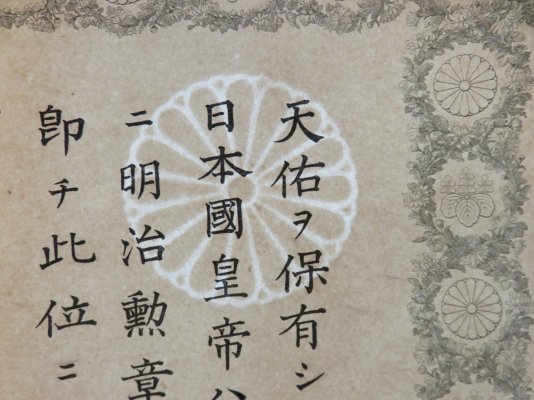 天佑ヲ保有シ
日本國皇帝ハ
ニ明治勲章
卽チ此位ニ